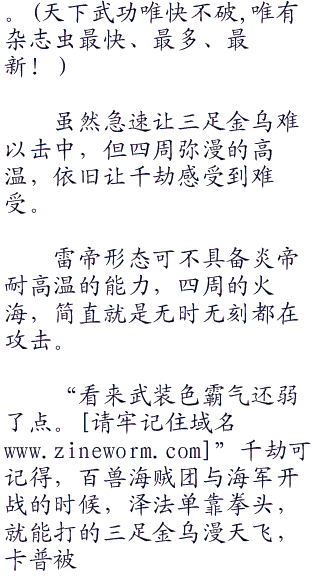 。(天下武功唯快不破,唯有
杂志虫最快、最多、最
新！)
虽然急速让三足金乌难
以击中，但四周弥漫的高
温，依旧让千劫感受到难
受。
雷帝形态可不具备炎帝
耐高温的能力，四周的火
海，简直就是无时无刻都在
攻击。
“看来武装色霸气还弱
了点。[请牢记住域名
www.zineworm.com]”千劫可
记得，百兽海贼团与海军开
战的时候，泽法单靠拳头，
就能打的三足金乌漫天飞，
卡普被